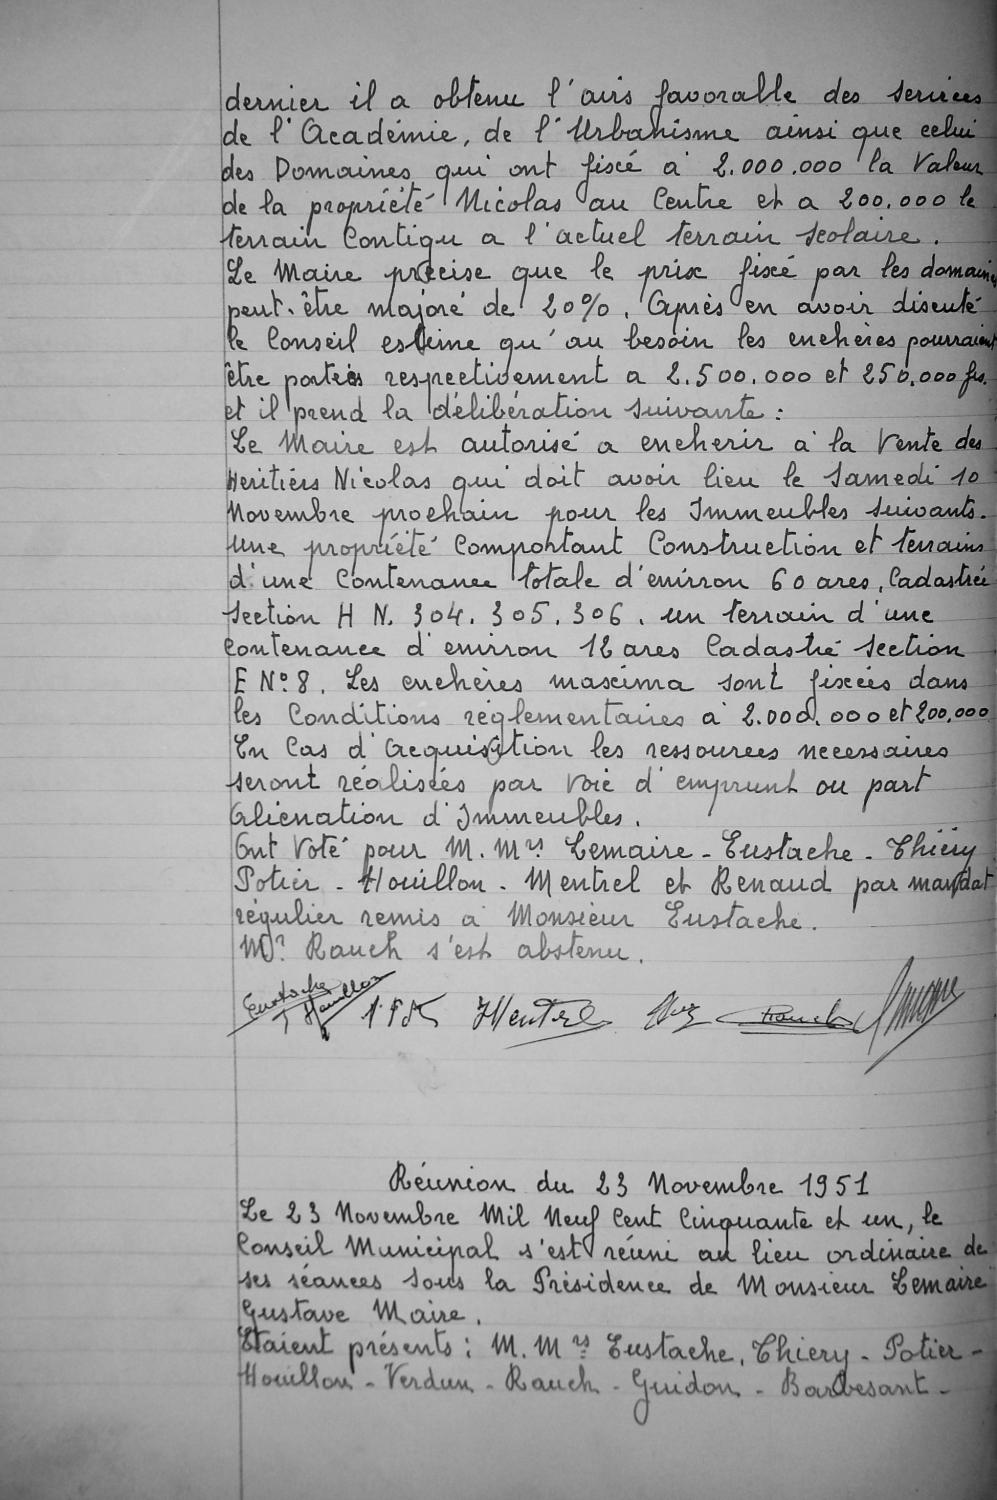 dernier il a obtenu l'avis favorable des services
de l'Académie, de l'Urbanisme ainsi que celui
des Domaines qui ont fixé à 2.000.000 la Valeur
de la propriété Nicolas au Centre et a 200.000 le
terrain Contigu a l'actuel terrain scolaire.
Le Maire précise que le prix fixé par les domaines
peut-être majoré de 20%. Après en avoir discuté
le Conseil estime qu'au besoin les enchères pourraient
être portées respectivement a 2.500.000 et 250.000 frs.
et il prend la délibération suivante :
Le Maire est autorisé a encherir à la Vente des
Heritiérs Nicolas qui doit avoir lieu le Samedi 10
Novembre prochain pour les Immeubles suivants.
Une propriété Comportant Construction et terrains
d'une Contenance totale d'environ 60 ares, Cadastrée
Section H N. 304. 305. 306. un terrain d'une
Contenance d'environ 12 ares Cadastré Section
E N° 8. Les enchères maxima sont fixées dans
les Conditions réglementaires à 2.000.000 et 200.000
En Cas d'acquisition les ressources necessaires
seront réalisées par Voie d'emprunt ou part
Aliénation d'Immeubles.
Ont Voté pour M. Mrs Lemaire - Eustache - Thiéry
Potier - Houillon - Mentrel et Renaud par mandat
régulier remis à Monsieur Eustache.
Mr Rauch s'est abstenu.
Eustache Houillon Mentrel Rauch
Réunion du 23 Novembre 1951
Le 23 Novembre Mil Neuf Cent Cinquante et un, le
Conseil Municipal s'est réuni au lieu ordinaire de
ses séances sous la Présidence de Monsieur Lemaire
Gustave Maire.
Etaient présents : M. Mrs Eustache, Thiery - Potier -
Houillon - Verdun - Rauch - Guidon - Barbesant -